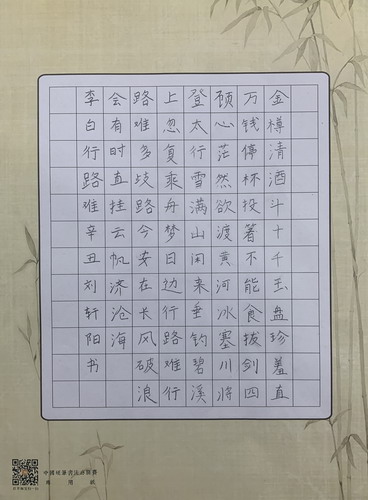 金樽清酒斗十千玉盘珍羞直
万钱停杯投箸不能食拔剑四
顾心茫然欲渡黄河冰塞川将
登太行雪满山闲来垂钓碧溪
上忽复乘舟梦日边行路难行
路难多歧路今安在长风破浪
会有时直挂云帆济沧海
李白行路难辛丑刘轩阳书
中國硬筆書法
專用紙